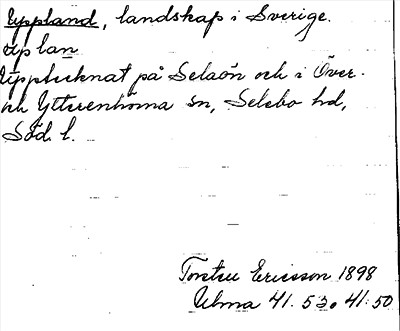 Uppland, landskap i Sverige.
up lan
Upptecknat på Selaön och i Över-
och Ytterenhörna sn, Selebo hd,
Söd. l.
Torsten Ericsson 1898
Ulma 41:53. 41:50